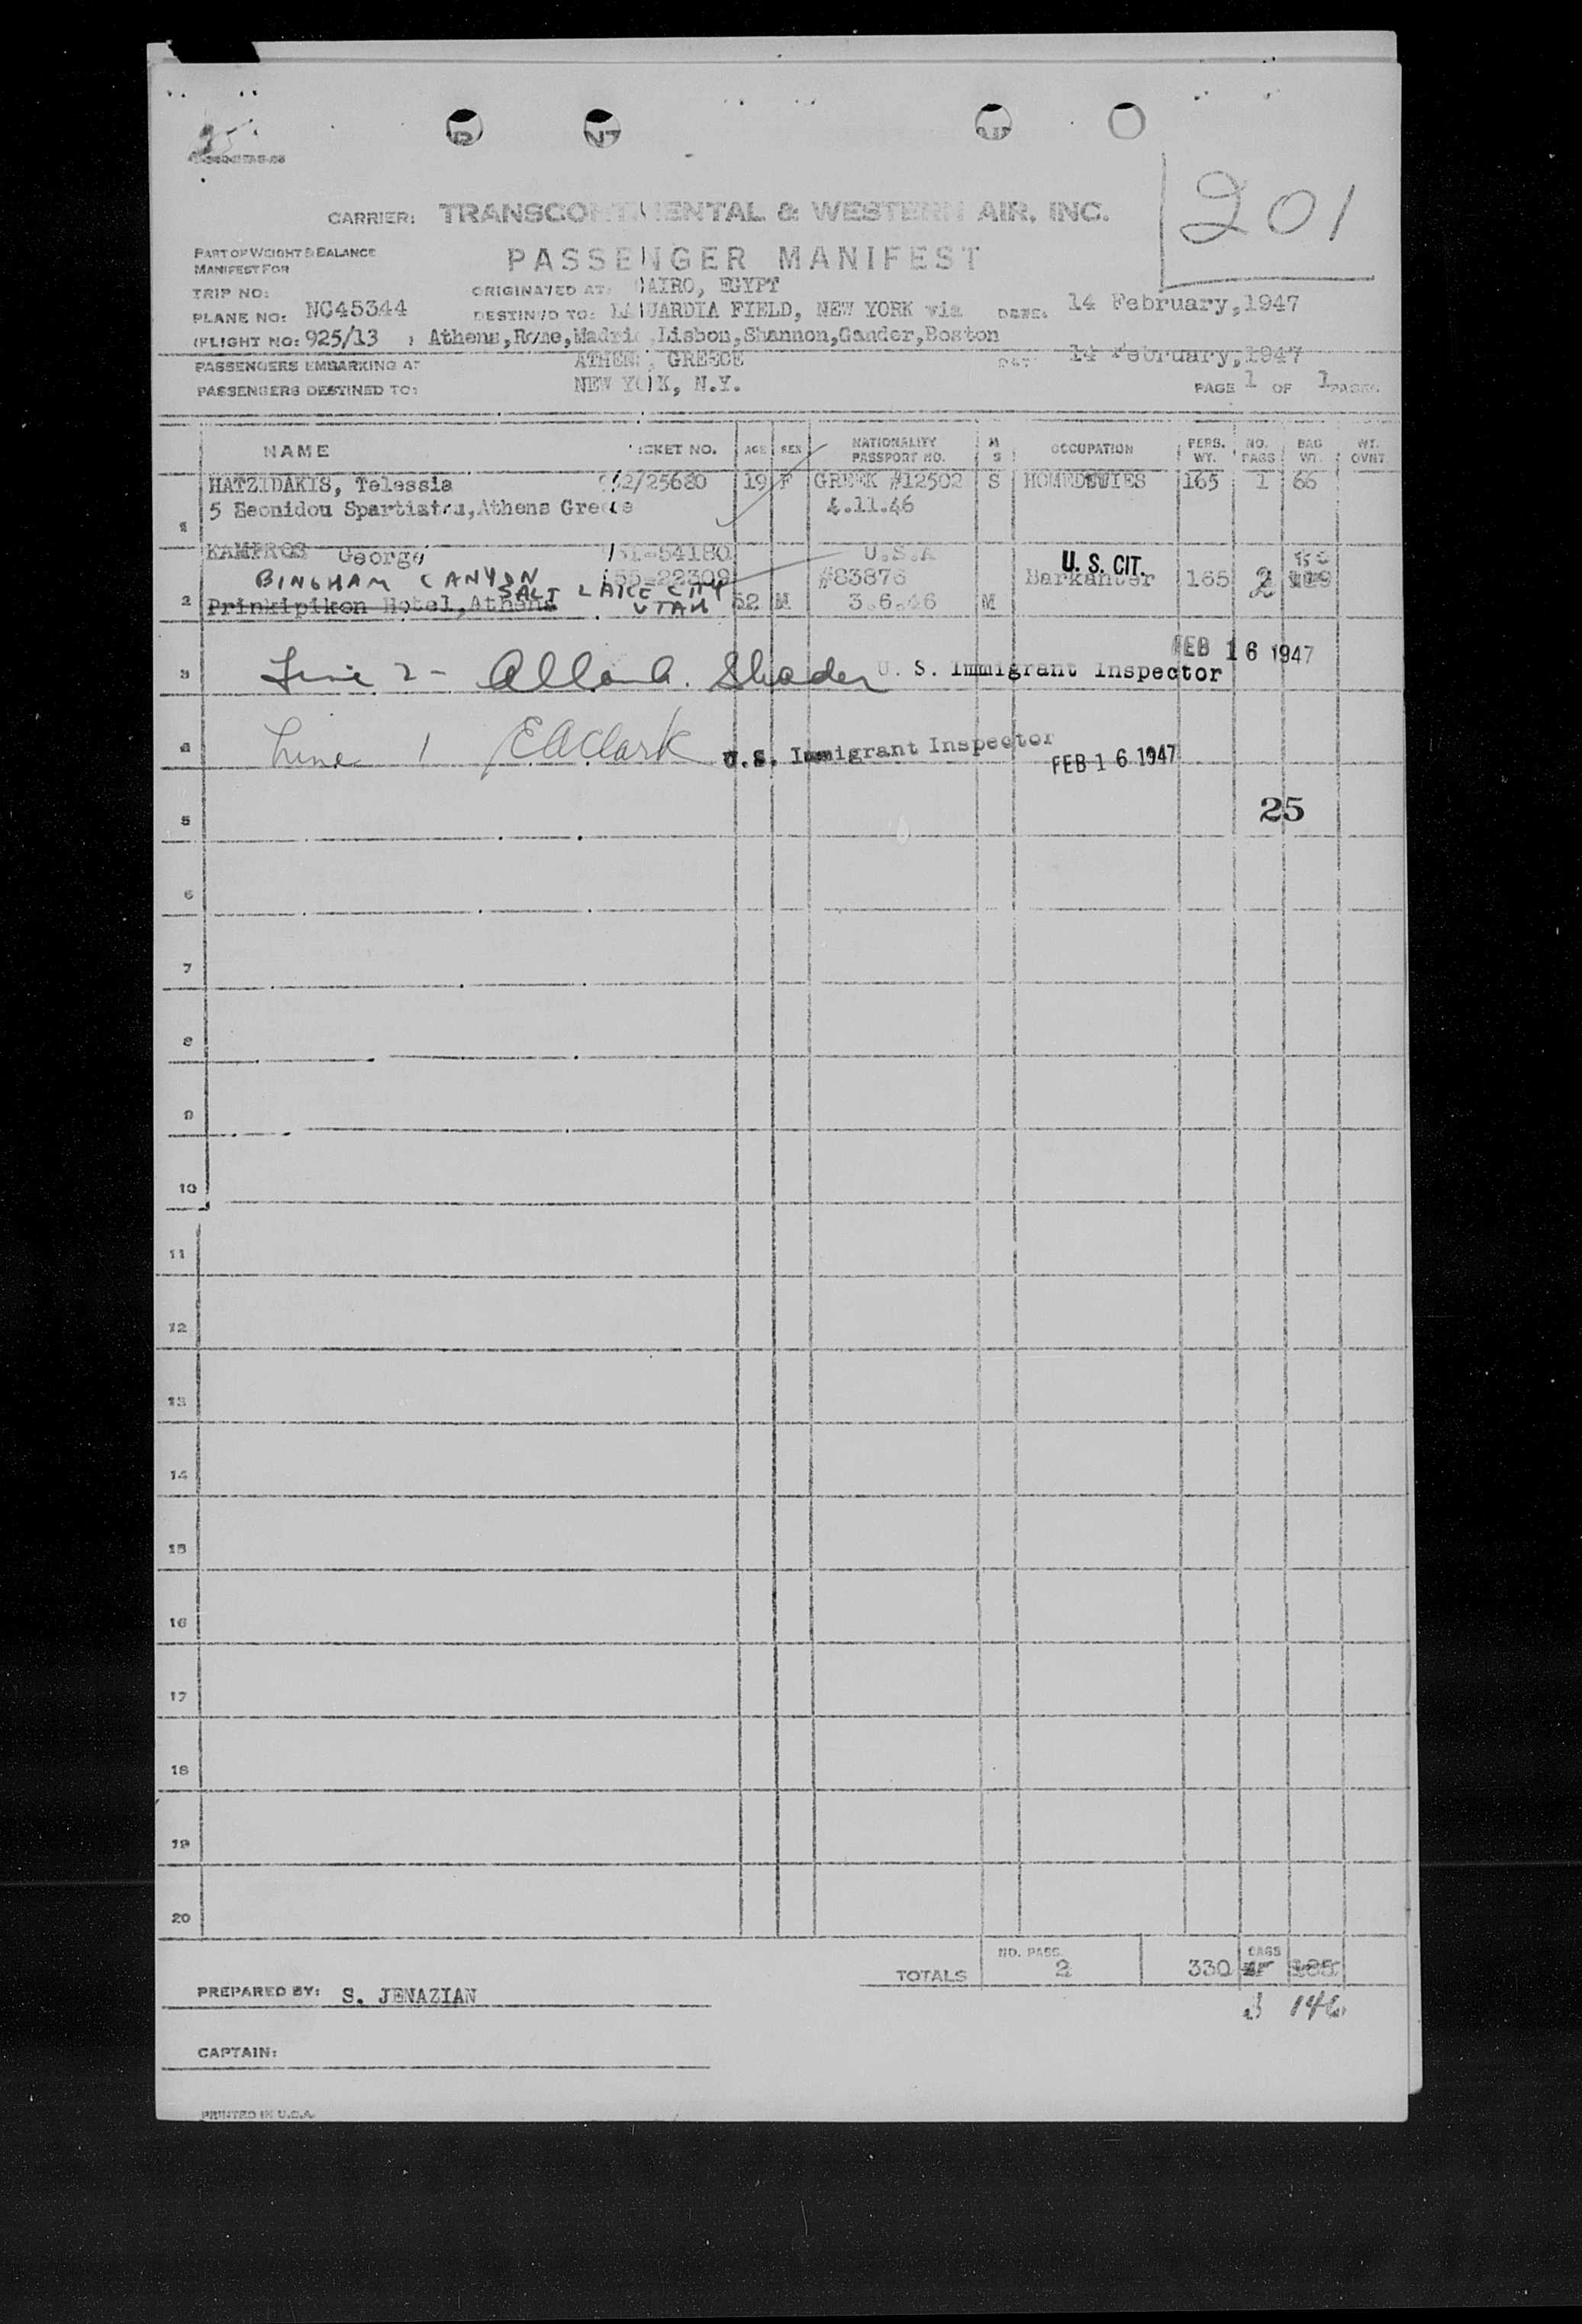 201
CARRIER: TRANSCONTINENTAL & WESTERN AIR, INC.
PART OF WEIGHT & BALANCE
MANIFEST FOR
PASSENGER MANIFEST
TRIP NO:
ORIGINATED AT: CAIRO, EGYPT
PLANE NO: NC45344
DESTINED TO: LAGUARDIA FIELD, NEW YORK via
DATE: 14 February, 1947
FLIGHT NO: 925/13 Athens,Rome,Madrid,Lisbon,Shannon,Gander,Boston
PASSENGERS EMBARKING AT ATHENS, GREECE
DATE 14 February, 1947
PASSENGERS DESTINED TO: NEW YORK, N.Y.
PAGE 1 OF 1 PAGES
NAME TICKET NO. AGE SEX NATIONALITY PASSPORT NO. M S OCCUPATION PERS. WT. NO. BAGS BAG WT. WT. OVNT.
HATZIDAKIS, Telessia /25680 19 F GREEK #12502 S 165 1 66
1 5 Spartiatou,Athens Greece 4.11.46
KAMPROS George -54180 U.S.A U.S. CIT.
BINGHAM CANYON -22309 #83876 Barkanter 165 2
SALT LAKE CITY
2 Prinkipikon Hotel,Athens UTAH 52 M 3.6.46 M
FEB 16 1947
3 Line 2 - Allan A. Shader U. S. Immigrant Inspector
4 Line 1 E A Clark U.S. Immigrant Inspector
FEB 16 1947
25
5
6
7
8
9
10
11
12
13
14
15
16
17
18
19
20
TOTALS NO. PASS. 2 330 BAGS
3 146
PREPARED BY: S. JENAZIAN
CAPTAIN:
PRINTED IN U.S.A.